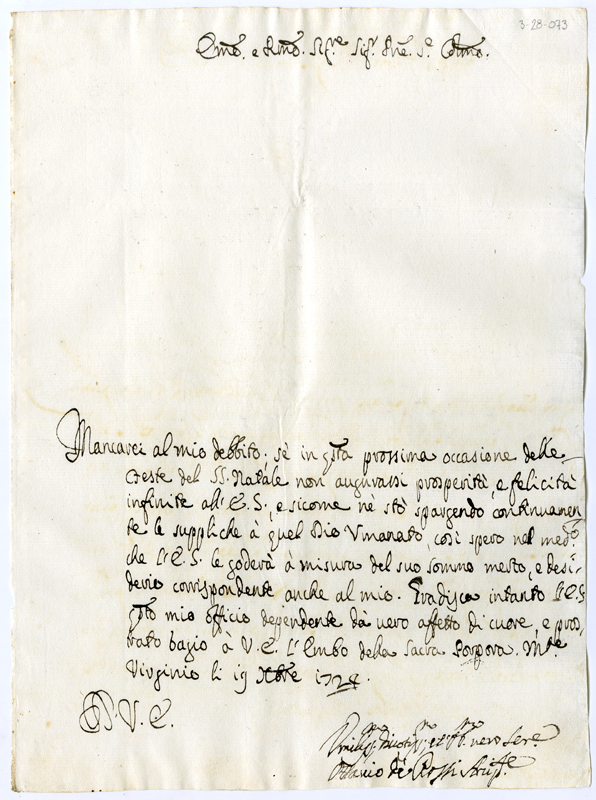 3-28-093
Emo. e Rmo. Sigre Sigr. Pne. Se. Colmo.
Mancarei al mio debbito; sè in qsta prossima occasione delle
Feste del SS. Natale non augurassi prosperità, e felicità
infinite all' E. S., e sicome nè stò spargendo continuamen
te le suppliche à quel Dio Vmanato, così spero nel medo
che l' E. S. le goderà à misura del suo sommo merto, e desi-
derio corrispondente anche al mio. Gradisca intanto l' E. S.
qsto mio officio dependente dà vero affetto di cuore, e pros
trato bagio à V. E. l' Lembo della Sacra Porpora. Mte
Virginio li 19 Xbre 1728.
D. V. E.
Vmilissmo Divotissmo et Obbmo vero Sere.
Ottavio dè Rossi